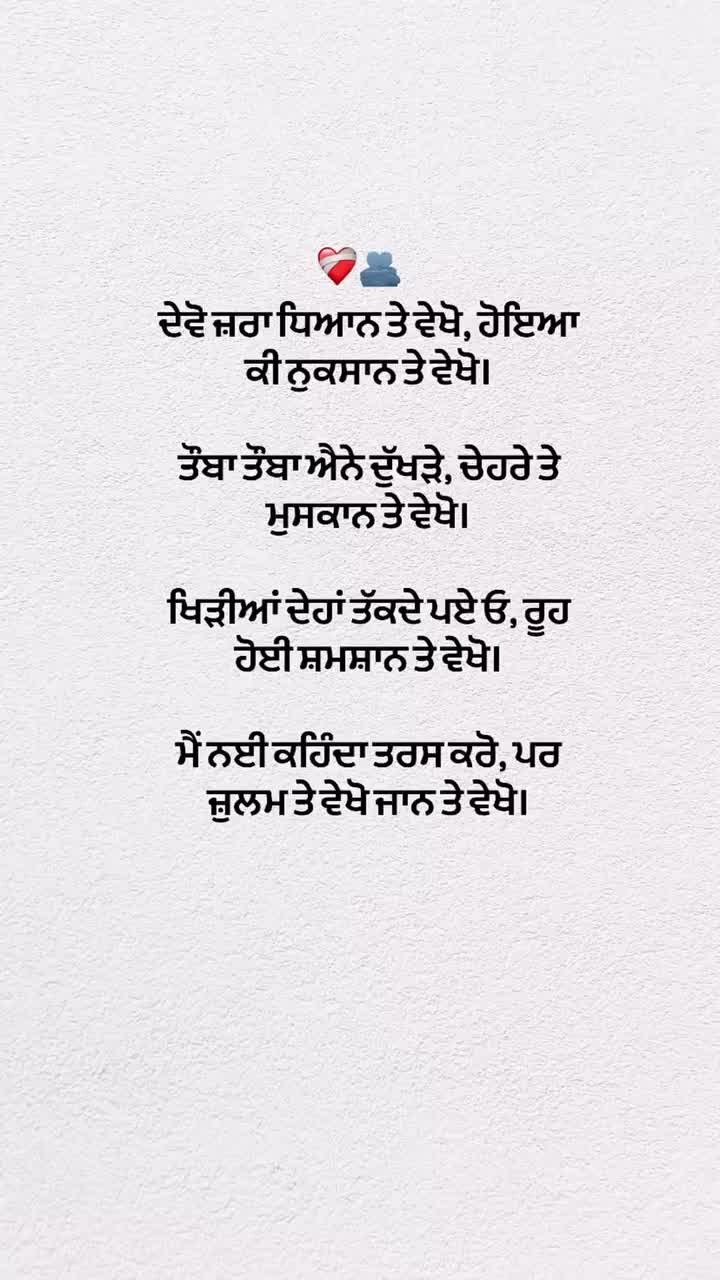 ❤️‍🩹🫂
ਦੇਵੋ ਜ਼ਰਾ ਧਿਆਨ ਤੇ ਵੇਖੋ, ਹੋਇਆ
ਕੀ ਨੁਕਸਾਨ ਤੇ ਵੇਖੋ।
ਤੌਬਾ ਤੌਬਾ ਐਨੇ ਦੁੱਖੜੇ, ਚੇਹਰੇ ਤੇ
ਮੁਸਕਾਨ ਤੇ ਵੇਖੋ।
ਖਿੜੀਆਂ ਦੇਹਾਂ ਤੱਕਦੇ ਪਏ ਓ, ਰੂਹ
ਹੋਈ ਸ਼ਮਸ਼ਾਨ ਤੇ ਵੇਖੋ।
ਮੈਂ ਨਈ ਕਹਿੰਦਾ ਤਰਸ ਕਰੋ, ਪਰ
ਜ਼ੁਲਮ ਤੇ ਵੇਖੋ ਜਾਨ ਤੇ ਵੇਖੋ।